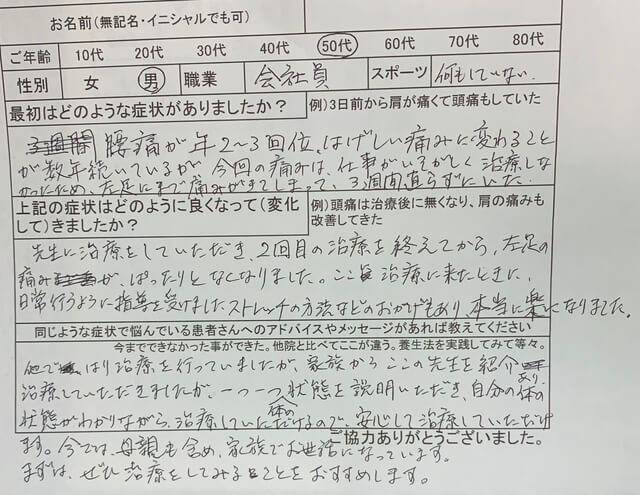 お名前(無記名・イニシャルでも可)
ご年齢 10代 20代 30代 40代 50代 60代 70代 80代
性別 女 男 職業 会社員 スポーツ 何もしていない.
最初はどのような症状がありましたか? 例)3日前から肩が痛くて頭痛もしていた
3週間 腰痛が年2〜3回位、はげしい痛みに変わること
が数年続いているが、今回の痛みは、仕事がいそがしく治療しな
かったため、左足にまで痛みがきてしまって、3週間直らずにいた.
上記の症状はどのように良くなって(変化して)きましたか? 例)頭痛は治療後に無くなり、肩の痛みも改善してきた
先生に治療をしていただき、2回目の治療を終えてから、左足の
痛みが、ぱったりとなくなりました。ここ 治療に来たときに、
日常行うように指導を受けましたストレッチの方法などのおかげもあり、本当に楽になりました。
同じような症状で悩んでいる患者さんへのアドバイスやメッセージがあれば教えてください
今までできなかった事ができた。他院と比べてここが違う。養生法を実践してみて等々。
他で はり治療を行っていましたが、家族からここの先生を紹介あり
治療していただきましたが、一つ一つ状態を説明いただき、自分の体の
状態がわかりながら、体の治療していただけるので、安心して治療していただけ
ます。今では、母親も含め、家族でお世話になっています。
ご協力ありがとうございました。
まずは、ぜひ治療をしてみることをおすすめします。